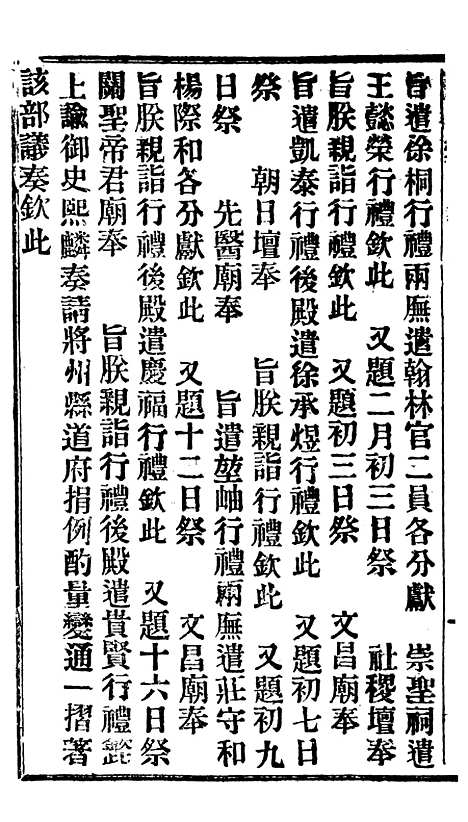 旨遣徐桐行禮兩廡遣翰林官二員各分獻　崇聖祠遣
王懿榮行禮欽此　又題二月初三日祭　社稷壇奉
旨朕親詣行禮欽此　又題初三日祭　文昌廟奉
旨遣凱泰行禮後殿遣徐承煜行禮欽此　又題初七日
祭　朝日壇奉　旨朕親詣行禮欽此　又題初九
日祭　先醫廟奉　旨遣堃岫行禮兩廡遣莊守和
楊際和各分獻欽此　又題十二日祭　文昌廟奉
旨朕親詣行禮後殿遣慶福行禮欽此　又題十六日祭
關聖帝君廟奉　旨朕親詣行禮後殿遣貴賢行禮欽此
上諭御史熙麟奏請將州縣道府捐例酌量變通一摺著
該部議奏欽此